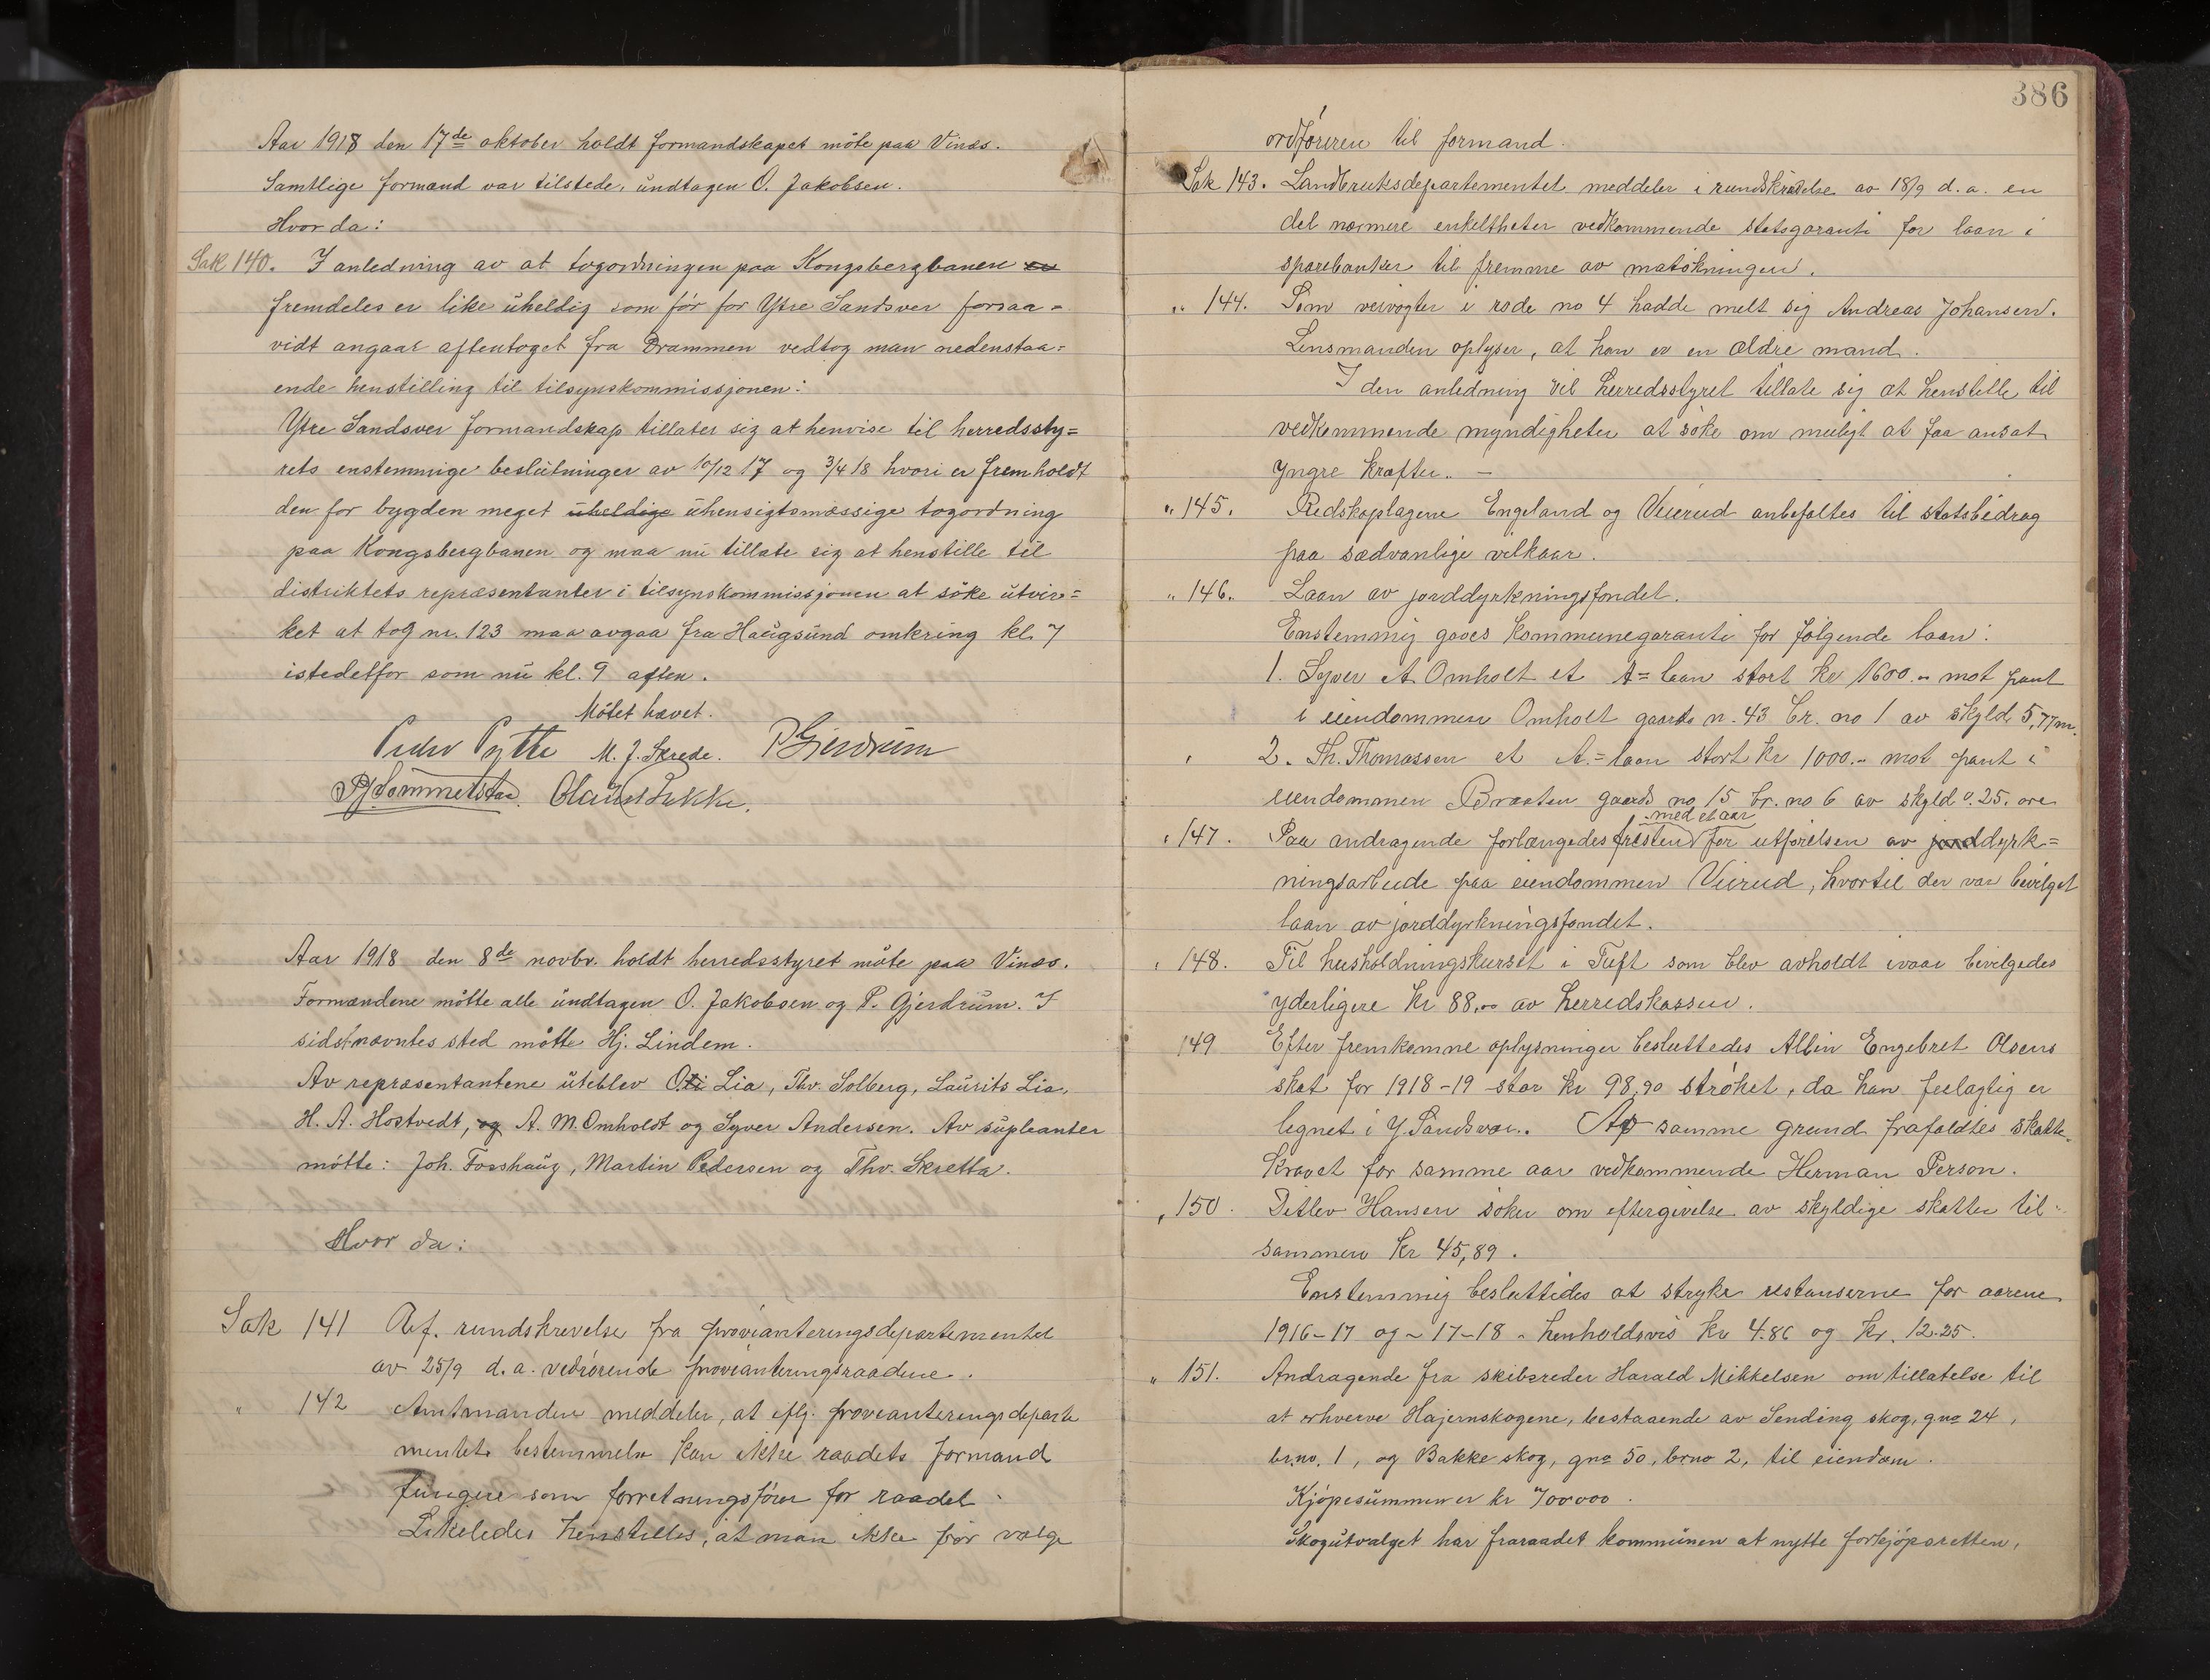 Aar 1918 den 17de oktober holdt formandskapet möte paa Vinæs.
Samtlige formænd var tilstede, undtagen O. Jakobsen.
Hvor da:
Sak 140. I anledning av at togordningen paa Kongsbergbanen er
fremdeles er like uheldig som för for Ytre Sandsver forsaa=
vidt angaar aftentoget fra Drammen vedtog man nedenstaa=
ende henstilling til tilsynskommissjonen:
Ytre Sandsver formandskap tillater sig at henvise til herredssty=
rets enstemmige beslutninger av 10/12 17 og 3/4 18 hvori er fremholdt
den for bygden meget uheldige uhensigtsmæssige togordning
paa Kongsbergbanen og maa nu tillate sig at henstille til
distriktets repræsentanter i tilsynskommissjonen at söke utvir=
ket at tog nr. 123 maa avgaa fra Haugsund omkring kl. 7
istedetfor som nu kl. 9 aften.
Mötet hævet.
Peder Pytte M. J. Skrede. P Gjerdrum
Aar 1918 den 8de novbr. holdt herredsstyret möte paa Vinæs.
Formændene mötte alle undtagen O. Jakobsen og P. Gjerdrum. I
sidstnævntes sted mötte Hj. Lindem.
Av repræsentantene uteblev Oti Lia, Thv. Solberg, Laurits Lia,
H. A. Hostvedt, og A. M. Omholdt og Syver Andersen. Av supleanter
mötte: Joh. Fosshaug, Martin Pedersen og Thv. Skretta.
Hvor da:
Sak 141 Ref. rundskrivelse fra provianteringsdepartementet
av 25/9 d.a. vedrörende provianteringsraadene.
" 142 Amtmanden meddeler, at iflg. provianteringsdeparte
mentets bestemmelse kan ikke raadets formand
fungere som forretningsförer for raadet.
Likeledes henstilles, at man ikke bör vælge
386
ordföreren til formand.
Sak 143. Landbruksdepartementet meddeler i rundskrivelse av 18/9 d.a. en
del nærmere enkeltheter vedkommende statsgaranti for laan i
sparebanker til fremme av matökningen.
" 144. Som veivogter i rode no 4 hadde melt sig Andreas Johansen.
Lensmanden oplyser, at han er en ældre mand.
I den anledning vil herredsstyret tillate sig at henstille til
vedkommende myndigheter at söke om muligt at faa ansat
yngre kræfter. —
" 145. Redskapslagene Engeland og Veierud anbefaltes til statsbidrag
paa sædvanlige vilkaar.
" 146. Laan av jorddyrkningsfondet.
Enstemmig gaves kommunegaranti for fölgende laan:
1. Syver A Omholt et A= laan stort kr 1600.- mot pant
i eiendommen Omholt gaards n. 43 br. no 1 av skyld 5,77 m.
2. Th. Thomassen et A.= laan stort kr 1000.- mot pant i
eiendommen Braaten gaards no 15 br. no 6 av skyld 0.25. öre
med et aar
" 147. Paa andragende forlængedes fristen for utförelsen av jorddyrk=
ningsarbeide paa eiendommen Vierud, hvortil der var bevilget
laan av jorddyrkningsfondet.
" 148. Til husholdningskurset i Tuft som blev avholdt ivaar bevilgedes
yderligere kr 88,00 av herredskassen.
149 Efter fremkomne oplysninger besluttedes Albin Engebret Olsens
skat for 1918-19 stor kr 98,90 ströket, da han feilagtig er
lignet i Y. Sandsvær. Av samme grund frafaldtes skatte-
kravet for samme aar vedkommende Herman Person.
" 150. Detlev Hansen söker om eftergivelse av skyldige skatter til-
sammen kr 45,89.
Enstemmig besluttedes at stryke restanserne for aarene
1916-17 og ~ 17-18 - henholdsvis kr 4.86 og kr. 12.25.
" 151. Andragende fra skibsreder Harald Mikkelsen om tillatelse til
at erhverve Hajernskogene, bestaaende av Sending skog, gno 24,
br.no. 1, og Bakke skog, gno 50, brno 2, til eiendom.
Kjöpesummen er kr 700000.
Skogutvalget har fraraadet kommunen at nytte forkjöpsretten,